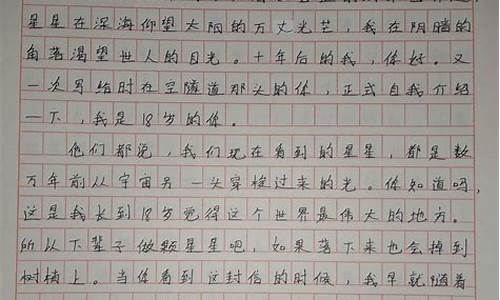 星星在深海仰望太阳的万丈光芒，我在阴暗的
角落渴望世人的目光。十年后的我，你好。又
一次写给时在空隧道那头的你，正式自我介绍
一下，我是18岁的你。
他们都说，我们现在看到的星星，都是数
万年前从宇宙另一头穿梭过来的光。你知道吗，
这是我长到18岁觉得这个世界最伟大的地方。
所以下辈子做颗星星吧，如果落下来也会掉到
树梢上。当你看到这封信的时候，我早就随着